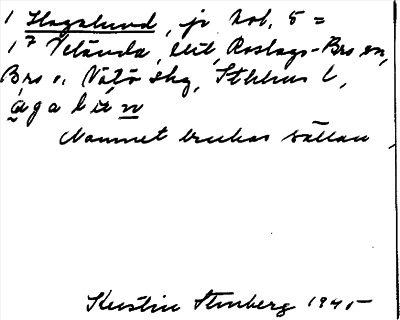 1 Hagalund, jr kol. 5 =
1⁷ Vetånda, ltl, Roslags-Bro sn,
Bro o. Vätö skg, Sthlms l,
a g a l u n
Namnet brukas sällan.
Kerstin Stenberg 1945